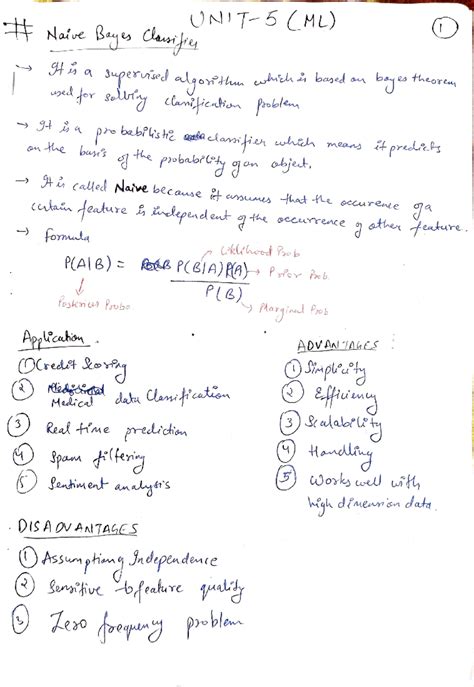 UNIT-5 (ML)
1
# Naive Bayes Classifier
→ It is a supervised algorithm which is based on bayes theorem
used for solving classification problem
→ It is a probabilistic classifier which means it predicts
on the basis of the probability of an object.
→ It is called Naive because it assumes that the occurence of a
certain feature is independent of the occurrence of other feature.
→ Formula
Likelihood Prob
P(A|B) = P(B|A) P(A) → Prior Prob.
P(B)
Posterior Probo
→ Marginal Prob
Application.
① Credit Scoring
② Medical data Classification
③ Real time prediction
④ Spam filtering
⑤ Sentiment analysis
ADVANTAGES
① Simplicity
② Efficiency
③ Scalability
④ Handling
⑤ Works well with
high dimension data.
DISADVANTAGES
① Assumptiong Independence
② Sensitive to feature quality
③ Zero frequency problem